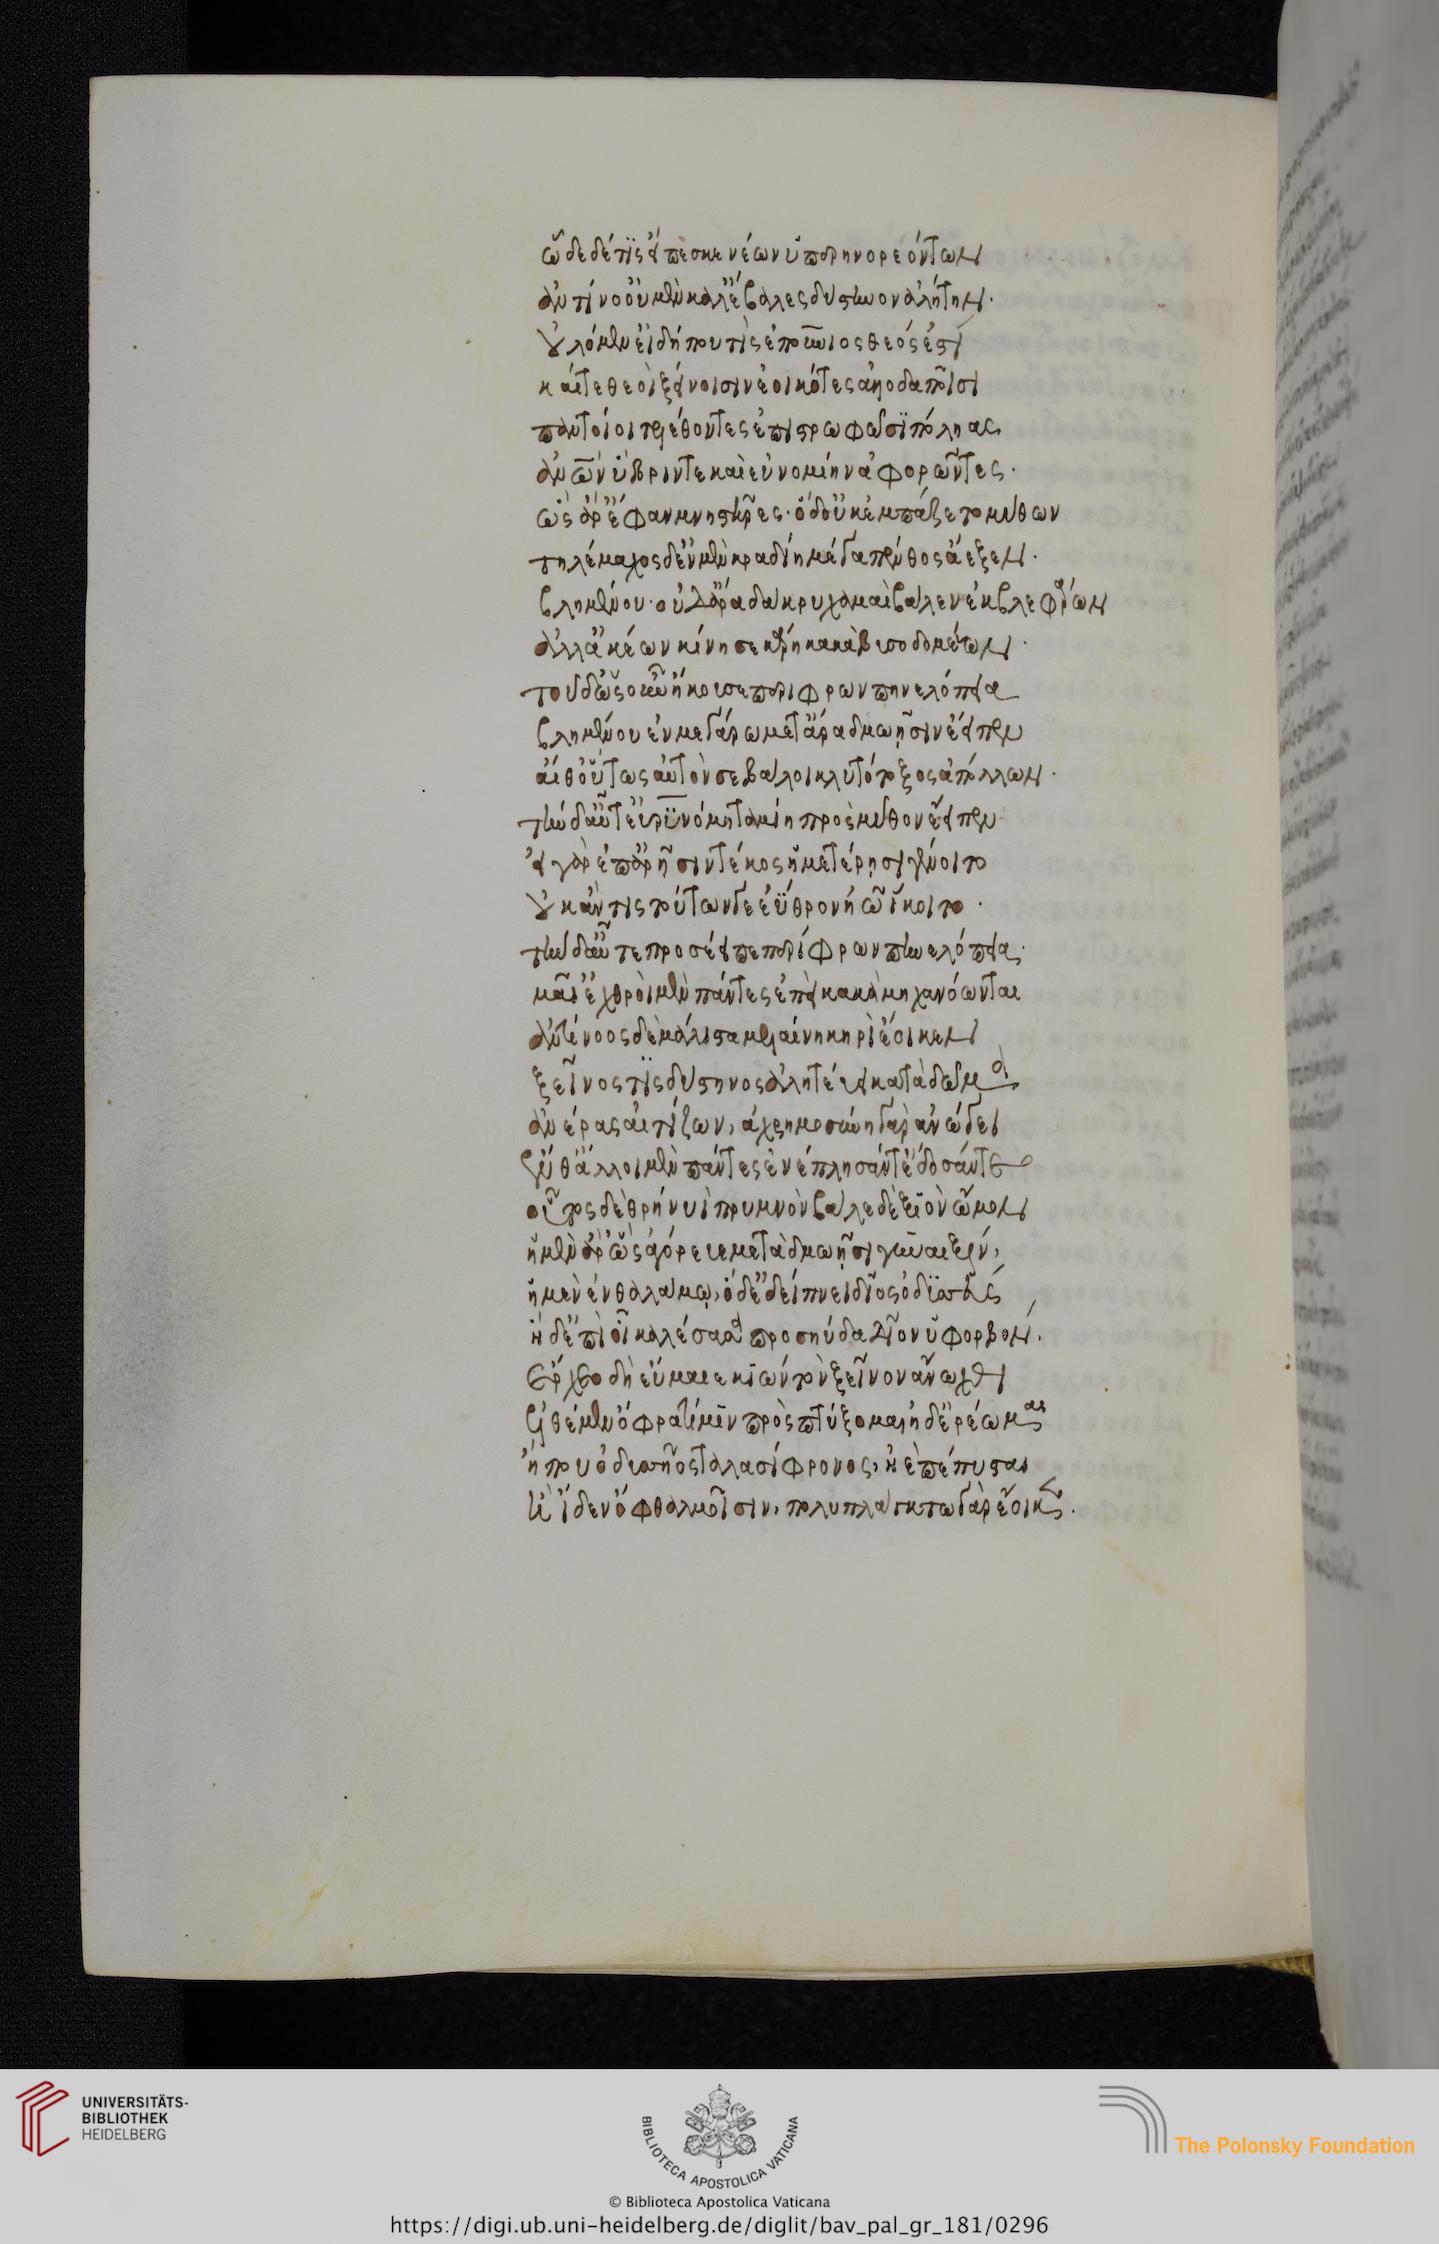 ὧδε δέ τις εἴπεσκε νέων ὑπερηνορεόντων
ἀντίνο οὐ μὲν κάλ' ἔβαλες δύστηνον ἀλήτην.
οὐλόμεν εἰ δή που τὶς ἐπουράνιος θεός ἐστί
καί τε θεοὶ ξείνοισιν ἐοικότες ἀλλοδαποῖσι
παντοῖοι τελέθοντες ἐπιστρωφῶσι πόληας
ἀνθρώπων ὕβριν τε καὶ εὐνομίην ἀφορῶντες.
ὣς ἄρ' ἔφαν μνηστῆρες. ὁ δ' οὐκ ἐμπάζετο μύθων
τηλέμαχος δ' ἐν μὲν κραδίη μέγα πένθος ἄεξεν.
βλημένου. οὐδ' ἄρα δάκρυ χαμαὶ βάλεν ἐκ βλεφάρων
ἀλλ' ἀκέων κίνησε κάρη κακὰ βυσσοδομεύων.
τοῦ δ' ὡς οὖν ἤκουσε περίφρων πηνελόπεια
βλημένου ἐν μεγάρω μετ' ἄρα δμωῇσιν ἔειπεν
αἴθ' οὕτως αὐτόν σε βάλοι κλυτότοξος ἀπόλλων.
τὴν δ' αὖτ' εὐρυνόμη ταμίη πρὸς μῦθον ἔειπεν
εἰ γὰρ ἐπ' ἀρῇσιν τέκος ἡμετέρῃσι γένοιτο
οὐκ ἄν τις τούτων γε ἐΰθρονον ἠῶ ἵκοιτο.
τὴν δ' αὖτε προσέειπε περίφρων πηνελόπεια.
μαῖ' ἐχθροὶ μὲν πάντες ἐπεὶ κακὰ μηχανόωνται
ἀντίνοος δὲ μάλιστα μελαίνη κηρὶ ἔοικεν
ξεῖνός τις δύστηνος ἀλητεύει κατὰ δῶμα
ἀνέρας αἰτίζων, ἀχρημοσύνη γὰρ ἀνώγει
ἔνθ' ἄλλοι μὲν πάντες ἐνέπλησάν τ' ἔδοσάν τε
οὗτος δὲ θρήνυι πρυμνὸν βάλε δεξιὸν ὦμον
ἡ μὲν ἄρ' ὣς ἀγόρευε μετὰ δμωῇσι γυναιξίν,
ἡμένη ἐν θαλάμῳ, ὁ δ' ἐδείπνει δῖος ὀδυσσεύς
ἡ δ' ἐπὶ οἷ καλέσασα προσηύδα δῖον ὑφορβόν.
ἔρχεο δῖ' εὔμαιε κιὼν τὸν ξεῖνον ἄνωχθι
ἐλθέμεν ὄφρα τί μιν προσπτύξομαι ἠδ' ἐρέωμαι
ἤ που ὀδυσσῆος ταλασίφρονος, ἠὲ πέπυσται
ἢ ἴδεν ὀφθαλμοῖσιν, πολυπλάγκτῳ γὰρ ἔοικεν.
UNIVERSITÄTS-
BIBLIOTHEK
HEIDELBERG
BIBLIOTECA APOSTOLICA VATICANA
The Polonsky Foundation
© Biblioteca Apostolica Vaticana
https://digi.ub.uni-heidelberg.de/diglit/bav_pal_gr_181/0296